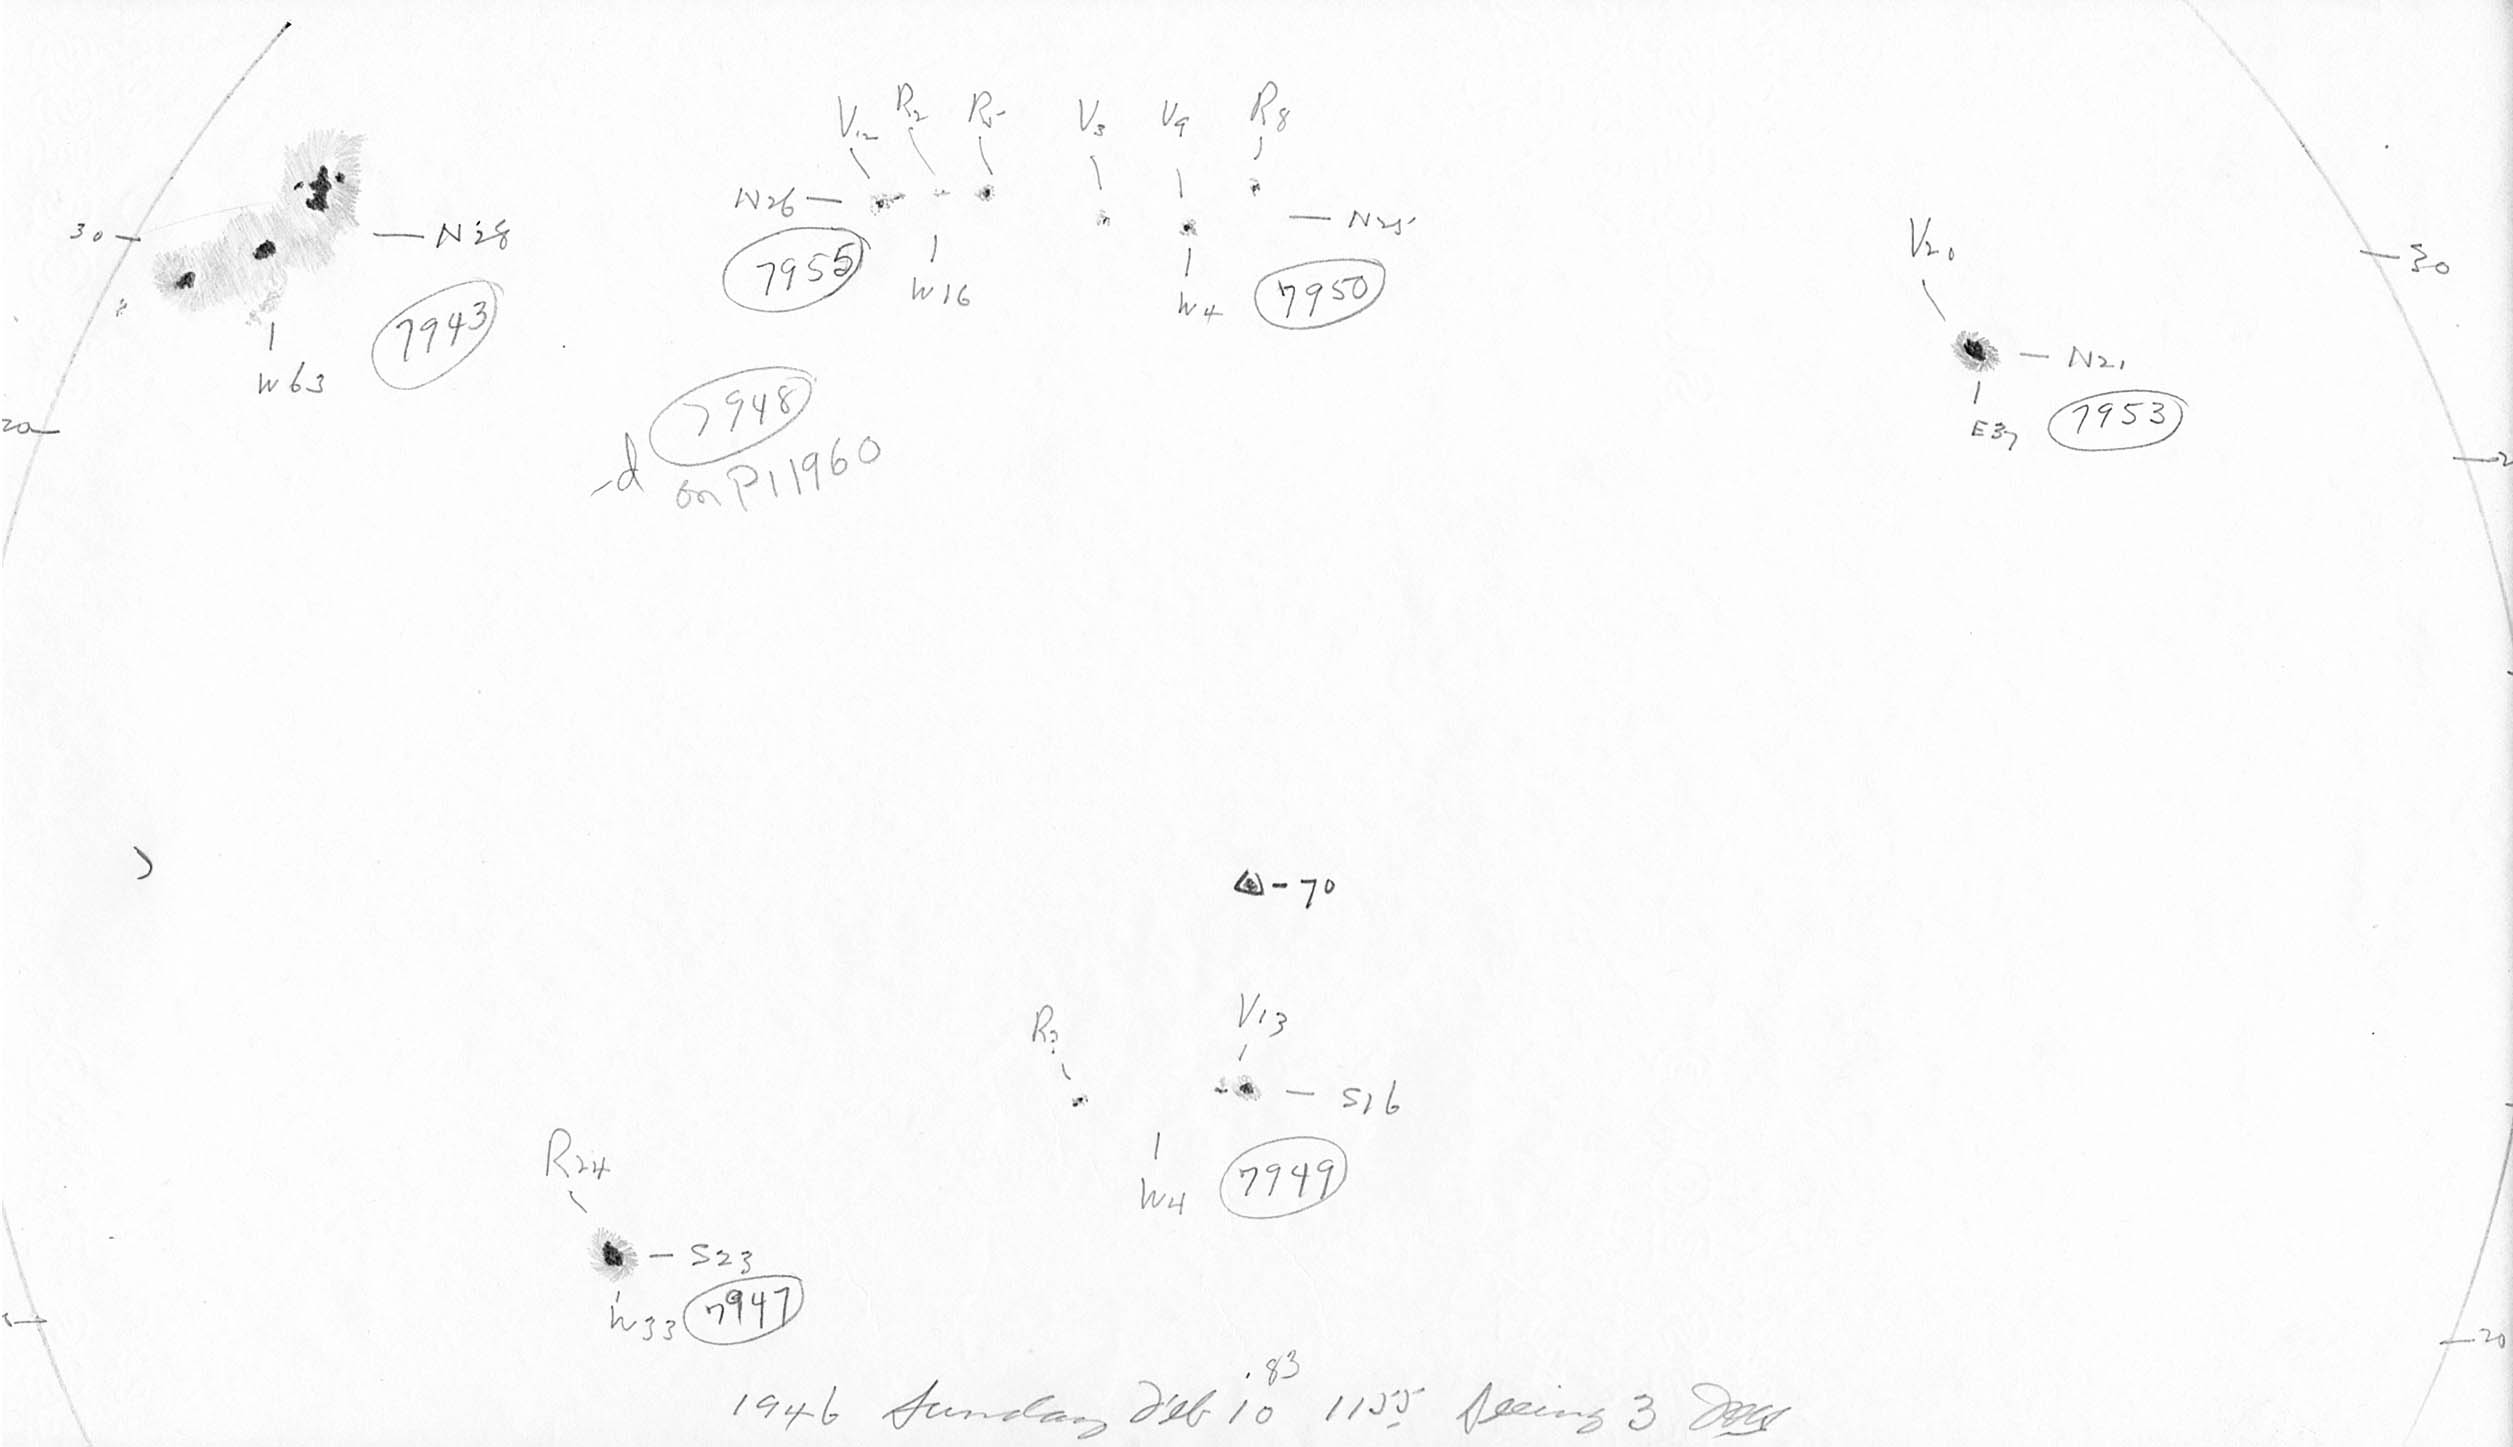 V12 R2 R5 V3 V9 R8
N26
N25
30
N28
7955
W16
W4
7950
7943
W63
V20
30
N21
E37
7953
20
7948
-d on P11960
2
70
R3
V13
S16
W4
7949
R24
S23
W33
7947
20
.83
1946 Sunday Feb 10 1155 Seeing 3